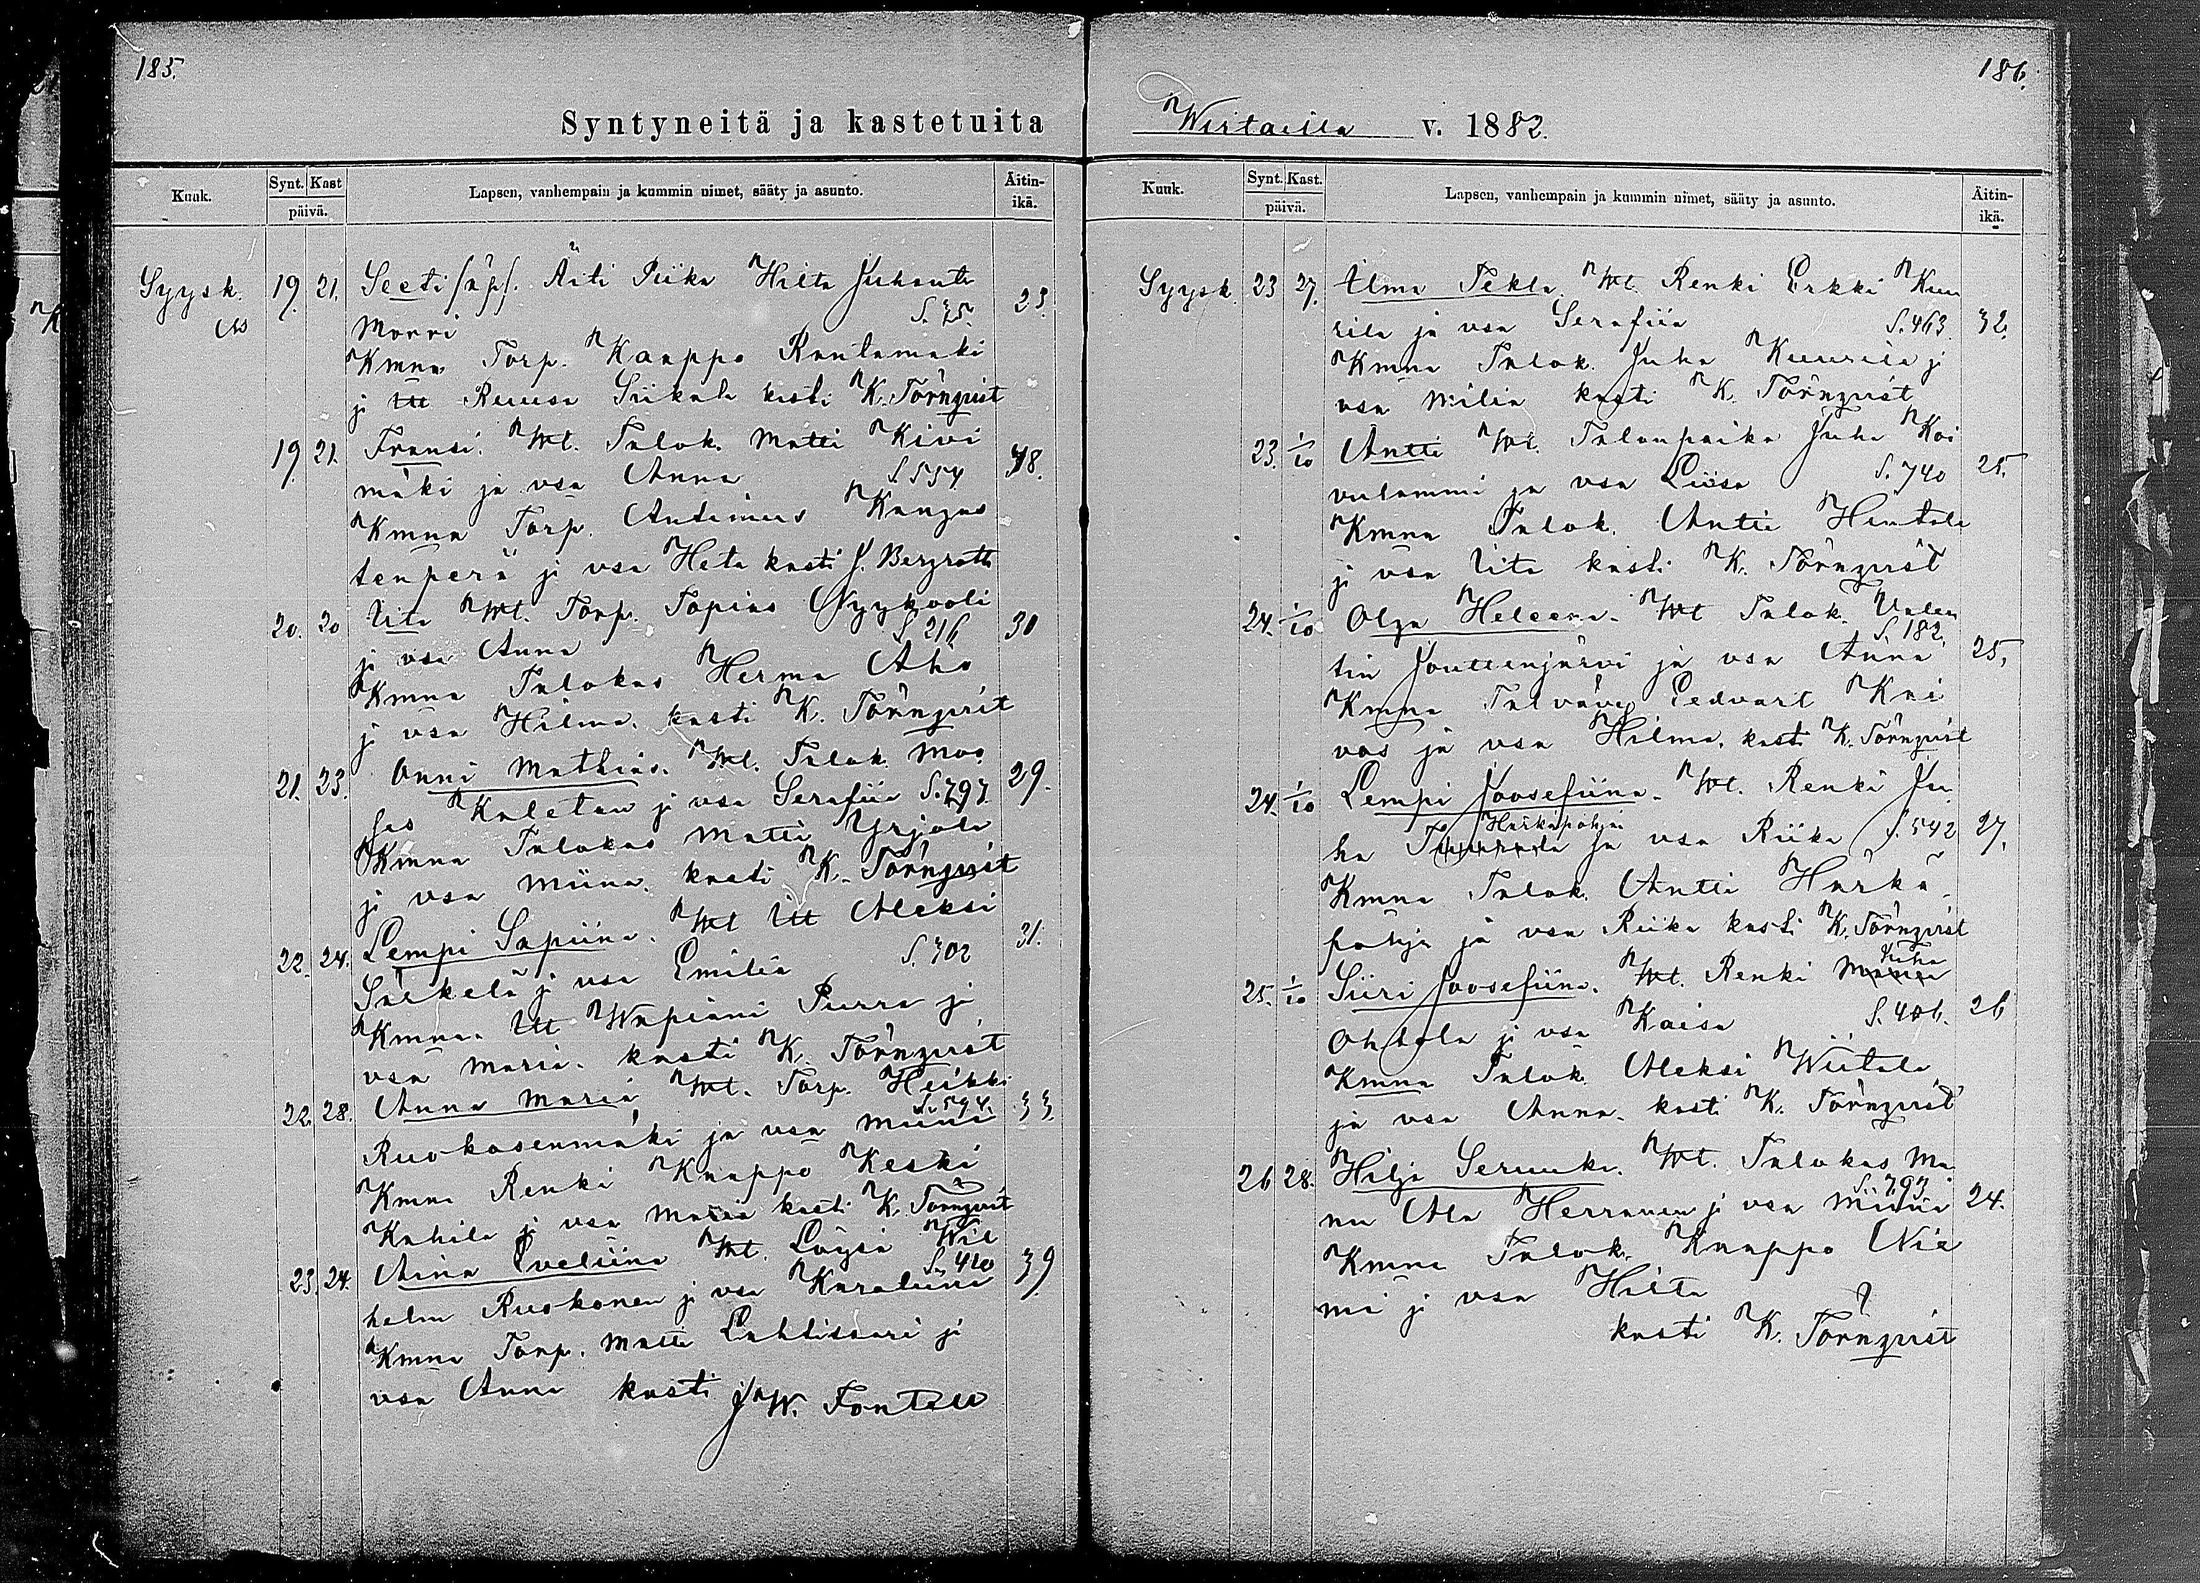 185.
Syntyneitä ja kastetuita
Kuuk.
Synt. Kast
päivä.
Lapsen, vanhempain ja kummin nimet, sääty ja asunto.
Äitin-
ikä.
Syysk. 19. 21. Seeti /äp/. Äiti Piika Hilta Juhantr
Morri S. 75. 23.
Kmna Torp. Kaappo Rautamäki
ja Itt Ruusa Siikala kasti K. Törnqvist
19. 21. Fransi. Wt. Talok. Matti Kivi
mäki ja vsa Anna S. 554 48.
Kmna Torp. Antinius Kangas
tenperä ja vsa Heta kasti J. Bergroth
20. 20 Iita Wt. Torp. Topias Nyykooli
ja vsa Anna S. 216 30
Kmna Talokas Herma Aho
ja vsa Hilma. kasti K. Törnqvist
21. 23. Onni Mathias. Wt. Talok. Moo
ses Kaletan ja vsa Serafiia S. 797. 29.
Kmna Talokas Matti Yrjola
ja vsa Miina. kasti K. Törnqvist
22. 24. Lempi Sapiina. Wt Itt Aleksi
Säikelä ja vsa Emiliä S. 302 31.
Kmna. Itt Wapiani Purra ja
vsa Maria. kasti K. Törnqvist
22. 28. Anna Maria Wt. Torp. Heikki
Ruokosenmäki ja vsa Miina S. 594. 33.
Kmna Renki Kaappo Keski
Kahila ja vsa Maria kasti K. Törnqvist
23. 24. Aina Eveliina Wt. Löysä Wil
helm Ruokonen ja vsa Karaliina S. 420 39.
Kmna Torp. Matti Lahtisaari ja
vsa Anna kasti J. W. Fontell
186.
v. 1882.
Kuuk.
Synt. Kast.
päivä.
Lapsen, vanhempain ja kummin nimet, sääty ja asunto.
Äitin-
ikä.
Syysk. 23 27. Elma Tekla. Wt. Renki Erkki Kuu
rila ja vsa Serafiia S. 463 32.
Kmna Talok. Juha Kuurila ja
vsa Milia kasti K. Törnqvist
23. 1/10 Antti Wt. Talonpoika Juha Koi
vulammi ja vsa Liisa S. 740 25.
Kmna Talok. Antti Hautala
ja vsa Iita kasti K. Törnqvist
24. 1/10 Olga Heleena. Wt Talok. Valen
tin Jouttenjärvi ja vsa Anna S. 182. 25.
Kmna Talvävy Eedvart Kai
vos ja vsa Hilma. kasti K. Törnqvist
24. 1/10 Lempi Joosefiina. Wt. Renki Ju
ha Härkäpohja ja vsa Riika S. 542 27.
Kmna Talok. Antti Härkä
pohja ja vsa Riika kasti K. Törnqvist
25. 1/10 Siiri Joosefiina. Wt. Renki Juha
Ohtola ja vsa Kaisa S. 406. 26
Kmna Talok. Aleksi Wiitala
ja vsa Anna. kasti K. Törnqvist
26 28. Hilja Seruuki. Wt. Talokas Ma
nu Ala Herranen ja vsa Miina S. 793. 24.
Kmna Talok. Kaappo Nie
mi ja vsa Hilta
kasti K. Törnqvist